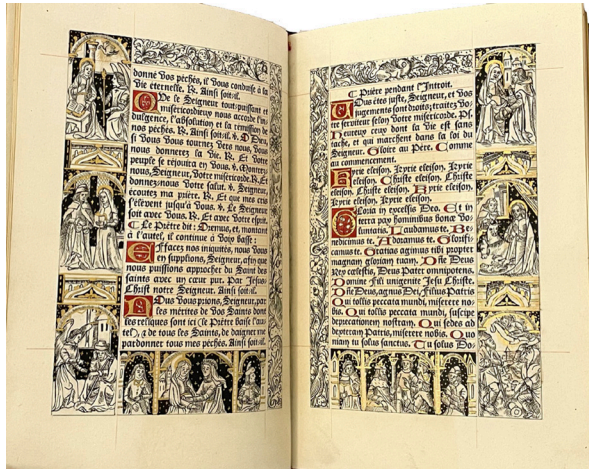 donné vos péchés, il vous conduise à la
vie éternelle. R. Ainsi soit-il.
Que le Seigneur tout-puissant et
miséricordieux nous accorde l'in-
dulgence, l'absolution et la rémission de
nos péchés. R. Ainsi soit-il. V. O Dieu,
si vous vous tournez vers nous, vous
nous donnerez la vie. R. Et votre
peuple se réjouira en vous. V. Montrez-
nous, Seigneur, votre miséricorde. R. Et
donnez-nous votre salut. V. Seigneur,
écoutez ma prière. R. Et que mes cris
s'élèvent jusqu'à vous. V. Le Seigneur
soit avec vous. R. Et avec votre esprit.
Le Prêtre dit: Oremus, et, montant
à l'autel, il continue à voix basse:
Effacez nos iniquités, nous vous
en supplions, Seigneur, afin que
nous puissions approcher du Saint des
saints avec un cœur pur. Par Jésus-
Christ notre Seigneur. Ainsi soit-il.
Nous vous prions, Seigneur, par
les mérites de vos Saints dont
les reliques sont ici (le Prêtre baise l'au-
tel), & de tous les Saints, de daigner me
pardonner tous mes péchés. Ainsi soit-il.
Prière pendant l'Introït.
Vous êtes juste, Seigneur, et vos
jugements sont droits; traitez vo-
tre serviteur selon votre miséricorde. Ps.
Heureux ceux dont la vie est sans
tache, et qui marchent dans la loi du
Seigneur. Gloire au Père. Comme
au commencement.
Kyrie eleison. Kyrie eleison. Kyrie
eleison. Christe eleison. Christe
eleison. Christe eleison. Kyrie eleison.
Kyrie eleison. Kyrie eleison.
Gloria in excelsis Deo. Et in
terra pax hominibus bonæ vo-
luntatis. Laudamus te. Be-
nedicimus te. Adoramus te. Glorifi-
camus te. Gratias agimus tibi propter
magnam gloriam tuam. Dñe Deus
Rex cœlestis, Deus Pater omnipotens.
Domine Fili unigenite Jesu Christe.
Dñe Deus, agnus Dei, Filius Patris
Qui tollis peccata mundi, miserere no-
bis. Qui tollis peccata mundi, suscipe
deprecationem nostram. Qui sedes ad
dexteram Patris, miserere nobis. Quo
niam tu solus sanctus. Tu solus Do-